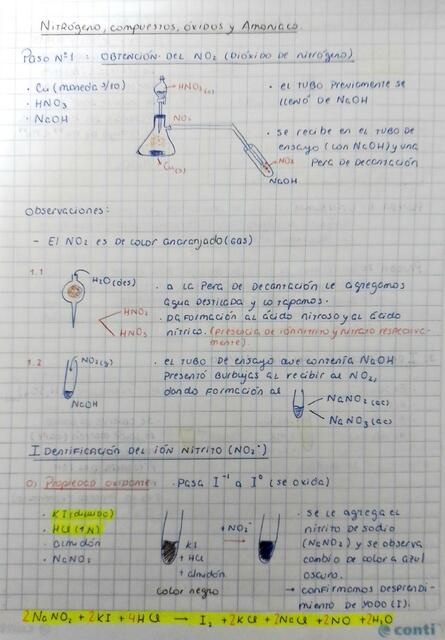 Nitrógeno, compuestos, óxidos y Amoniaco.
Paso N°1 : Obtención del NO2 (Dióxido de nitrógeno)
· Cu (moneda 3/10)
· HNO3
· NaOH
HNO3(c)
NO2
Cu(s)
NO2
NaOH
· el tubo previamente se
llenó de NaOH
· se recibe en el tubo de
ensayo (con NaOH) y una
pera de decantación
Observaciones:
- El NO2 es de color anaranjado (gas)
1.1
H2O(des)
HNO2
HNO3
· a la pera de decantación le agregamos
agua destilada y lo tapamos.
· Da formación al ácido nitroso y al ácido
nítrico. (presencia de ión nitrito y nitrato respectiva-
mente).
1.2
NO2(g)
NaOH
· el tubo de ensayo que contenía NaOH
presentó burbujas al recibir al NO2,
dando formación al
NaNO2(ac)
NaNO3(ac)
Identificación del ión nitrito (NO2-)
a) Propiedad oxidante · Pasa I-1 a I0 (se oxida)
· KI (diluido)
· HCl (1N)
· almidón
· NaNO2
KI
+ HCl
+ almidón
color negro
+NO2-
· se le agrega el
nitrito de sodio
(NaNO2) y se observa
cambio de color a azul
oscuro.
→ confirmamos desprendi-
miento de yodo (I).
2NaNO2 + 2KI + 4HCl → I2 + 2KCl + 2NaCl + 2NO + 2H2O
conti